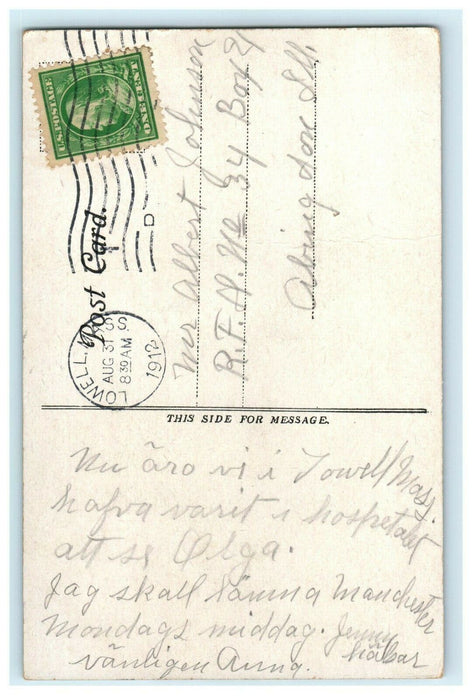 U.S. POSTAGE
ONE CENT
Post Card.
LOWELL, MASS.
AUG 31
8 30 AM
1912
D
Mr Albert Johnson
R.F.D. No 34 Box 21
Abingdon Ill.
THIS SIDE FOR MESSAGE.
Nu äro vi i Lowell Mass.
hafva varit i hospetalet
att se Olga.
Jag skall lämna Manchester
Mondags middag. Jenny
vänligen Anna. hälsar